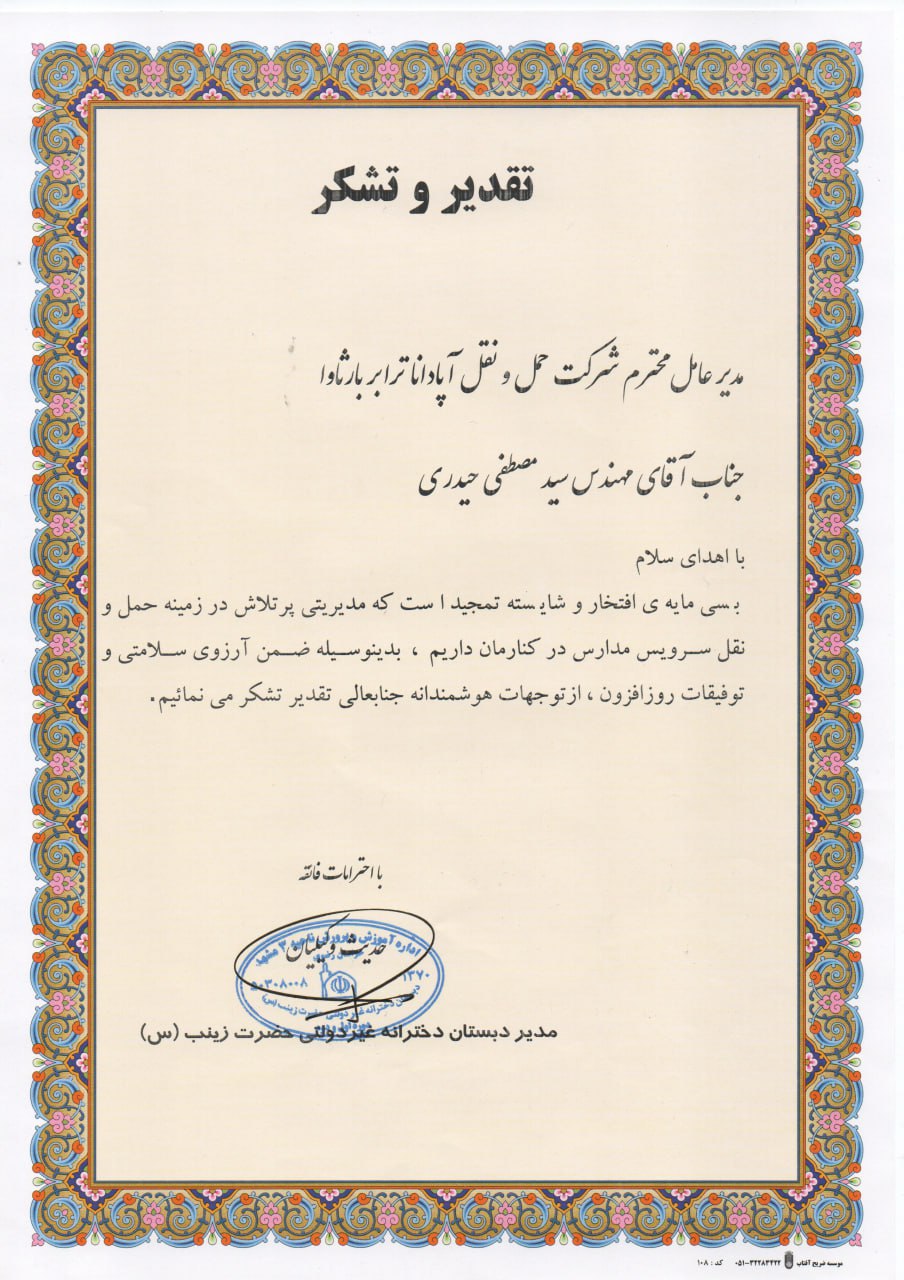 تقدیر و تشکر
مدیر عامل محترم شرکت حمل و نقل آپادانا ترابر بارثاوا
جناب آقای مهندس سید مصطفی حیدری
با اهدای سلام
بسی مایه ی افتخار و شایسته تمجید است که مدیریتی پرتلاش در زمینه حمل و
نقل سرویس مدارس در کنارمان داریم ، بدینوسیله ضمن آرزوی سلامتی و
توفیقات روزافزون ، از توجهات هوشمندانه جنابعالی تقدیر تشکر می نمائیم.
با احترامات فائقه
حدیث وکیلیان
اداره آموزش و پرورش ناحیه ۳ مشهد
۱۳۷۰
۵۰۳۰۸۰۰۸
دبستان دخترانه غیر دولتی حضرت زینب (س)
مدیر دبستان دخترانه غیردولتی حضرت زینب (س)
موسسه ضریح آفتاب ۰۵۱-۳۲۲۸۳۴۲۲ کد : ۱۰۸